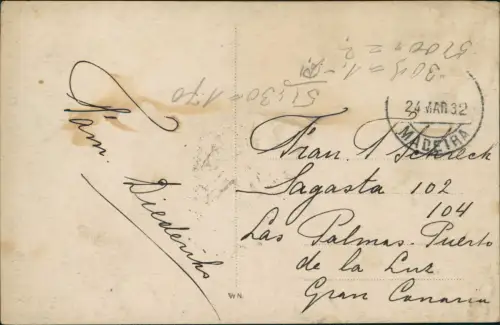 Fam.
Diederiks
5200 =
30 = 1.
51.30 = 1.70
24 MAR 32
MADEIRA
Fran. T Schreck
Sagasta 102
104
Las Palmas-Puerto
de la Luz
Gran Canaria
W.N.